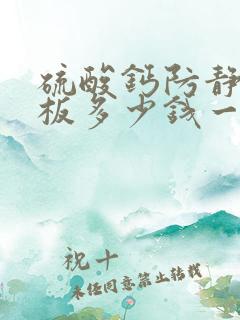 硫酸钙防静
板多少钱一
祝十
未经同意禁止转载